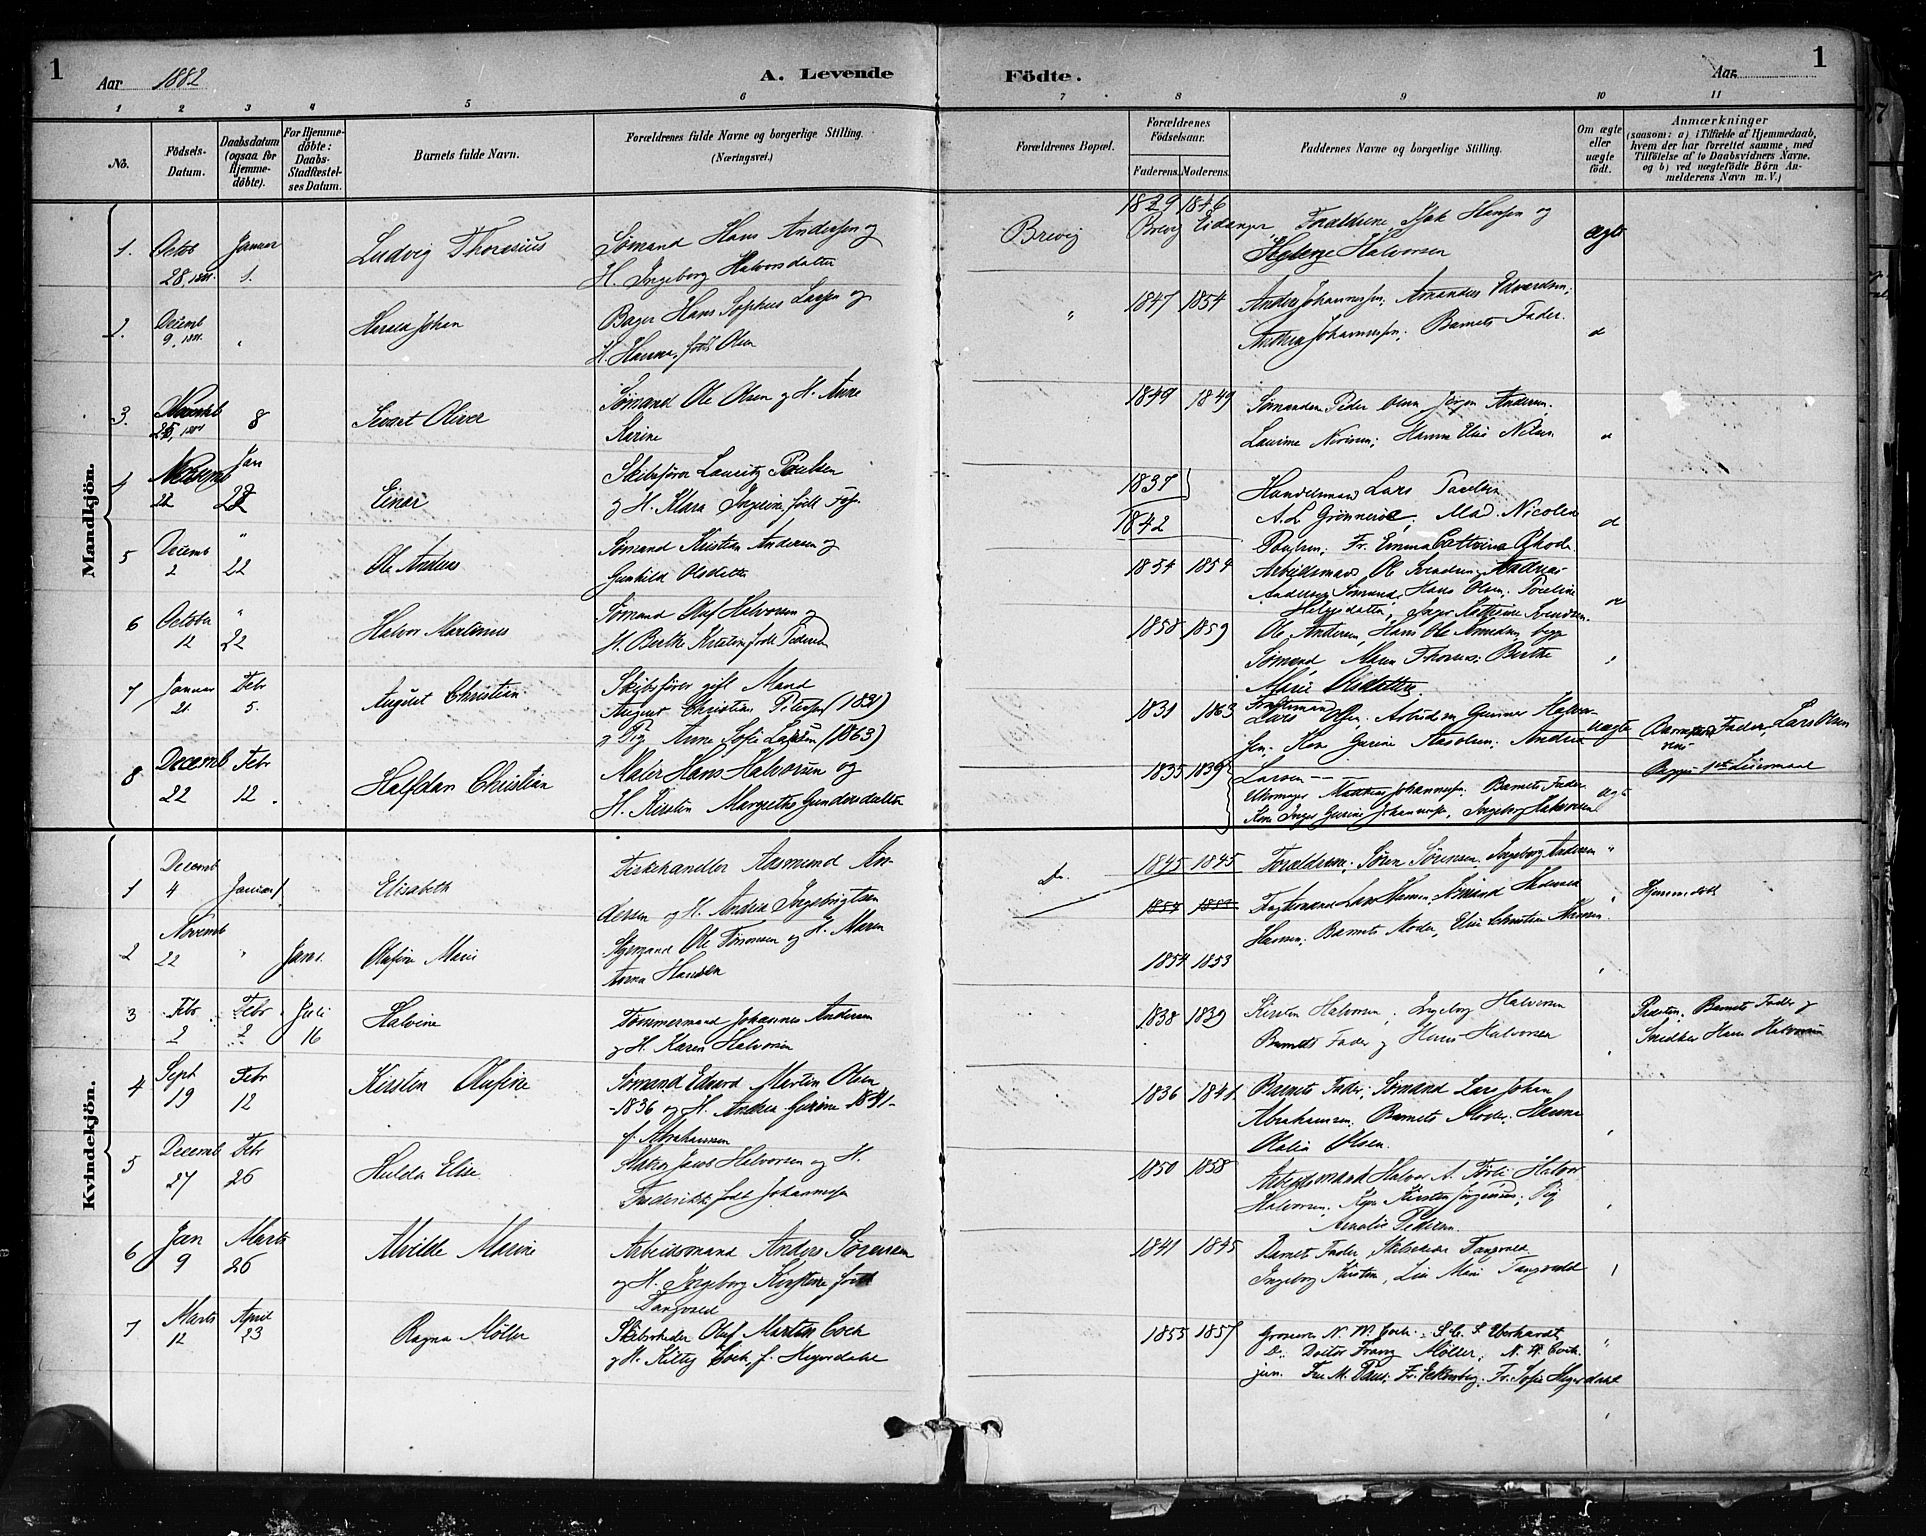 1
Aar 1882
A. Levende Födte.
Aar
1
1 2 3 4 5 6 7 8 9 10 11
No.
Födsels-Datum.
Daabsdatum (ogsaa for Hjemme-döbte).
For Hjemme-döbte: Daabs-Stadfæstel-ses Datum.
Barnets fulde Navn.
Forældrenes fulde Navne og borgerlige Stilling. (Næringsvei.)
Forældrenes Bopæl.
Forældrenes Födselsaar.
Faderens. Moderens.
Faddernes Navne og borgerlige Stilling.
Om ægte eller uægte födt.
Anmærkninger
(saasom: a) i Tilfælde af Hjemmedaab,
hvem der har forrettet samme, med
Tilföielse af to Daabsvidners Navne,
og b) ved uægtefödte Börn An-
melderens Navn m. V.)
Mandkjön.
1. Octob 28, 1881. Januar 1.
Ludvig Thorasius
Sömand Hans Andersen og
H. Ingeborg Halvorsdatter
Brevig
1829 1846
Brevig Eidanger
Forældrene Hansen og
Halvorsen
ægte
2. Decemb 9, 1881. "
Harald Johan
Bager Hans Sophus Larsen og
H. Hanna, født Olsen
"
1847 1854
Anders Johannessen, Amandus Edvardsen;
Andrea Johannessen; Barnets Fader.
3. 25, 1881 8
Sevart Oliver
Sömand Ole Olsen og H. Anne
Karine
1849 1849
Sömanden Peder Olsen Jörgen Andersen,
Laurine Hanna Elise Nilsen
4 22 Jan 22
Einar
Skibsförer Lauritz Paulsen
og H. Klara Ingeine født
1837
1842
Handelsmand Lars Paulsen
A. L. Grönneröe; Mad. Nicolea
Poulsen; Fr. Emma Cathrina Rhode
5 Decemb 2 " 22
Ole Andreas
Sömand Kristian Andersen og
Gunhild Olsdatter
1854 1854
Arbeidsmand Ole Svendsen Andreas
Andersen Sömand, Hans Olsen, Toreline
Helgesdatter, Inger Kathrine Svendsen.
6 October 12 " 22
Halvor Martinus
Sömand Oluf Halvorsen og
H. Berthe Kristine født Pedersen
1858 1859
Ole Andersen, Hans Ole Amedsen, begge
Sömænd, Maren Thorsen; Berthe
Marie Olsdatter.
7 Januar 21. Febr 5.
August Christian
Skibsförer gift Mand
August Christian Petersen (1831)
og Pig. Anne Sofie Larsen (1863)
1831 1863
Lars Olsen. Gunner Halvor-
sen. Kone Gurine Aasolsen; Andrea
Larsen
uægte
Barnets Fader, Lars Olsen
8 Decemb 22 Febr 12.
Halfdan Christian
Maler Hans Halvorsen og
H. Kirstin Margrethe Gundersdatter
1835 1839
Uhrmager Mathias Johannessen; Barnets Fader
Kone Inger Gurine Johannessen, Ingeborg Halvorsen
Kvindekjön.
1 Decemb 4 Januar 1
Elisabeth
Fiskehandler Aasmund An-
dersen og H. Andrea Ingebrigtsen
Do.
1845 1845
Forældrene; Sören Sörensen, Ingeborg Andersen "
1854 1853
2 Novemb 22 " Janr.
Olufine Marie
Styrmand Ole Tönnesen og H. Maren
Anna Hansen
1854 1853
Fragtemand Lars Hansen, Sömand
Hansen; Barnets Moder, Elise Christine Hansen.
Hjemmedöbt
3 Febr 2 Febr 2 Juli 16
Halvine
Tömmermand Johannes Andersen
og H. Karen Halvorsen
1838 1839
Kirsten Halvorsen, Ingeborg Halvorsen
Barnets Fader og Hans Halvorsen
Præsten. Barnets Fader og
Snedker Hans Halvorsen
4 Sept 19 Febr 12
Kirsten Olufine
Sömand Edvard Martin Olsen
-1836 og H. Andrea Gurine -1841-
f. Abrahamsen
1836 1841
Barnets Fader; Sömand Lars Johan
Abrahamsen. Barnets Moder; Hanna
Olalia Olsen.
5 Decemb 27 Febr 26
Hulda Elise
Halvorsen og H.
Frederikke født Johannessen
1850 1858
Arbeidsmand Halvor A. Halvor
Halvorsen. Kirsten Jörgensen; Pig
Amalie Pedersen
6 Jan 9 Marts 26
Alvilde Marine
Arbeidsmand Anders Sörensen
og H. Ingeborg Kirstine født
Tangvald
1841 1845
Barnets Fader, Tangvald
Ingeborg Kirstin, Lise Marie Tangvald
7 Marts 12 April 23
Ragna Möller
Skibsreder Oluf Martin Coch
og H. Kitty Coch, f. Heyerdahl
1855 1857
Grosserer N. M. Coch. S. C. S. Eberhardt,
D: Doctor Franz Möller, N. A. Coch.
jun. Fru M. Paus, Fr. Eckersberg, Fr. Sofie Heyerdahl